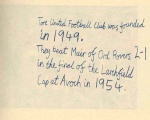 Tore United Football Club was founded
in 1949.
They beat Muir of Ord Rovers 2-1
in the final of the Larchfield
Cup at Avoch in 1954.